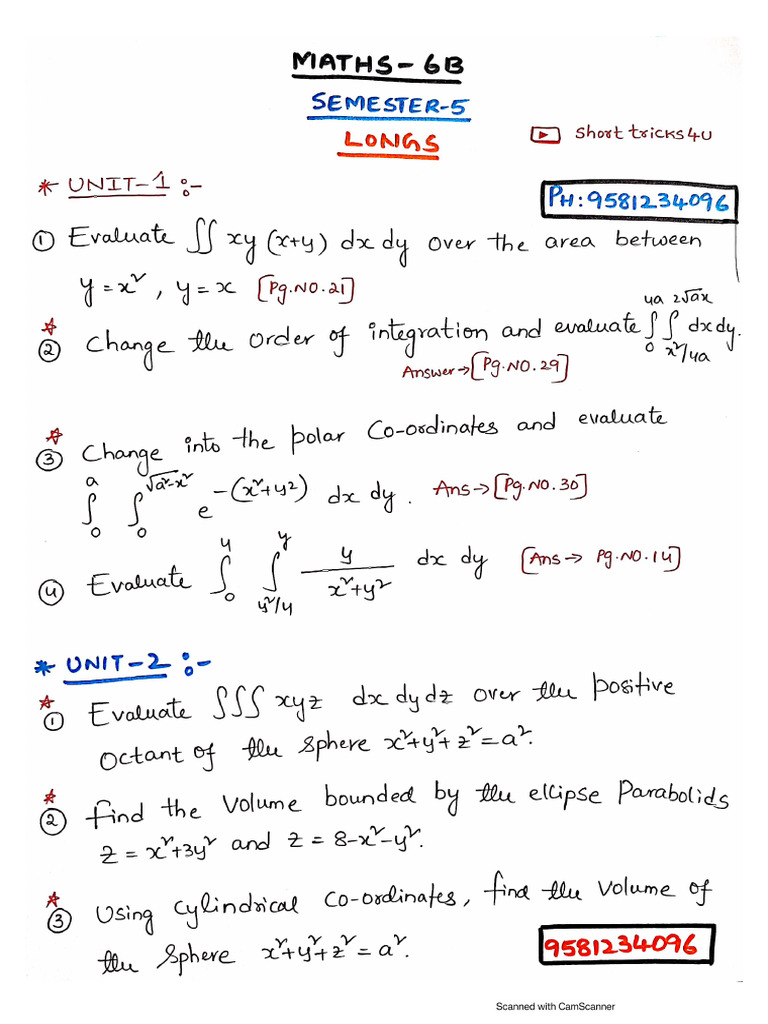 MATHS-6B
SEMESTER-5
LONGS
Short tricks4U
* UNIT-1 :-
PH: 9581234096
① Evaluate ∬ xy (x+y) dx dy over the area between
y = x², y = x [Pg.NO.21]
② Change the order of integration and evaluate ∫₀^{4a} ∫_{x²/4a}^{2√ax} dx dy.
Answer→ [Pg.NO.29]
③ Change into the polar Co-ordinates and evaluate
∫₀^a ∫₀^{√a²-x²} e^{-(x²+y²)} dx dy. Ans→ [Pg.NO.30]
④ Evaluate ∫₀^4 ∫_{y²/4}^y y/(x²+y²) dx dy [Ans → Pg.NO.14]
* UNIT-2 :-
① Evaluate ∫∫∫ xyz dx dy dz over the positive
Octant of the sphere x²+y²+z²=a².
② Find the Volume bounded by the ellipse Parabolids
z = x²+3y² and z = 8-x²-y².
③ Using cylindrical co-ordinates, find the volume of
the sphere x²+y²+z²=a².
9581234096
Scanned with CamScanner